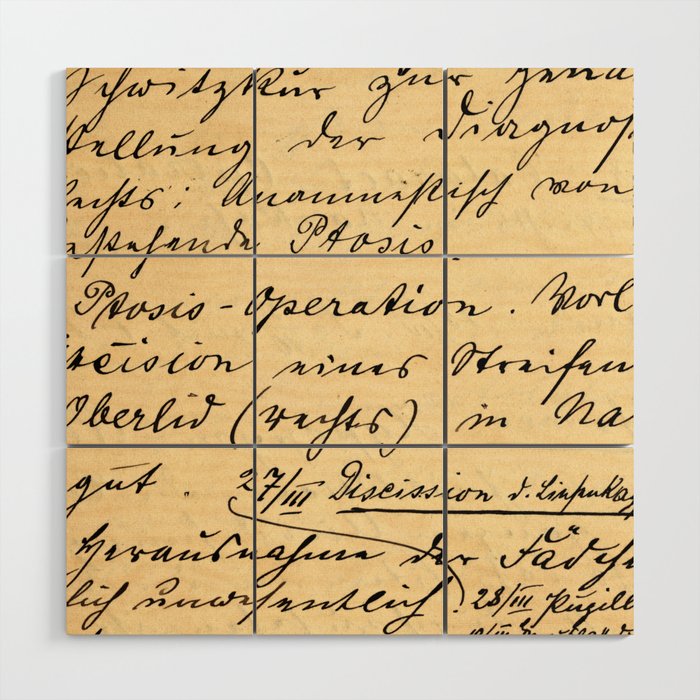 Schwitzkur zur Gena
stellung der Diagnos
rechts: Anamnestisch von
bestehende Ptosis.
Ptosis-operation. Vorl
Excision eines Streifen
Oberlid (rechts) in Na
gut. 27/III Discission d. Linsenkap
Herausnahme der Fäden
lich unwesentlich. 28/III